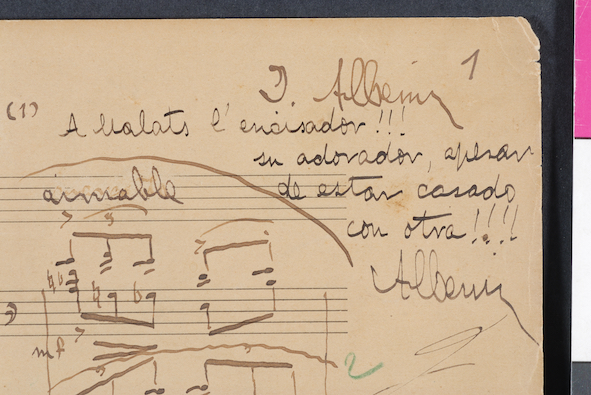 1
I. Albeniz
(1)
A Malats l'encisador!!!
su adorador, apesar
de estar casado
con otra!!!!
amable
Albeniz
3
mf
3
2